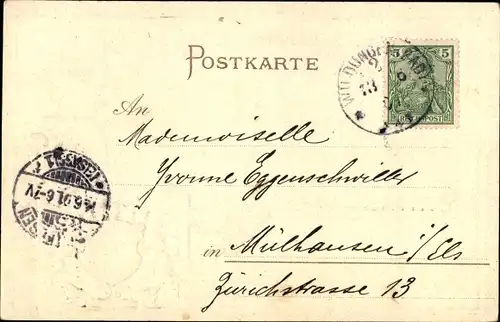 POSTKARTE
5 5
REICHSPOST
An
Mademoiselle
Yvonne Eggenschwiller
in Mülhausen i/Els
Zürichstrasse 13